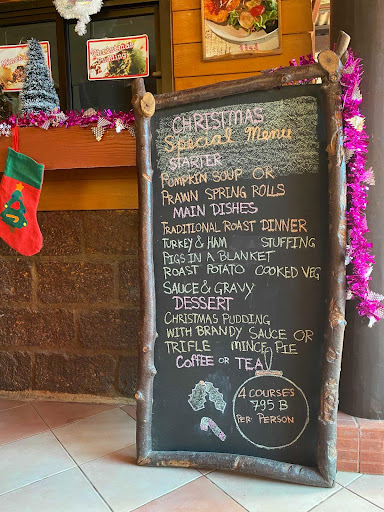 CHRISTMAS
Special Menu
STARTER
PUMPKIN SOUP OR
PRAWN SPRING ROLLS
MAIN DISHES
TRADITIONAL ROAST DINNER
TURKEY & HAM STUFFING
PIGS IN A BLANKET
ROAST POTATO COOKED VEG
SAUCE & GRAVY
DESSERT
CHRISTMAS PUDDING
WITH BRANDY SAUCE OR
TRIFLE MINCE PIE
COFFEE OR TEA
4 COURSES
795 B
PER PERSON